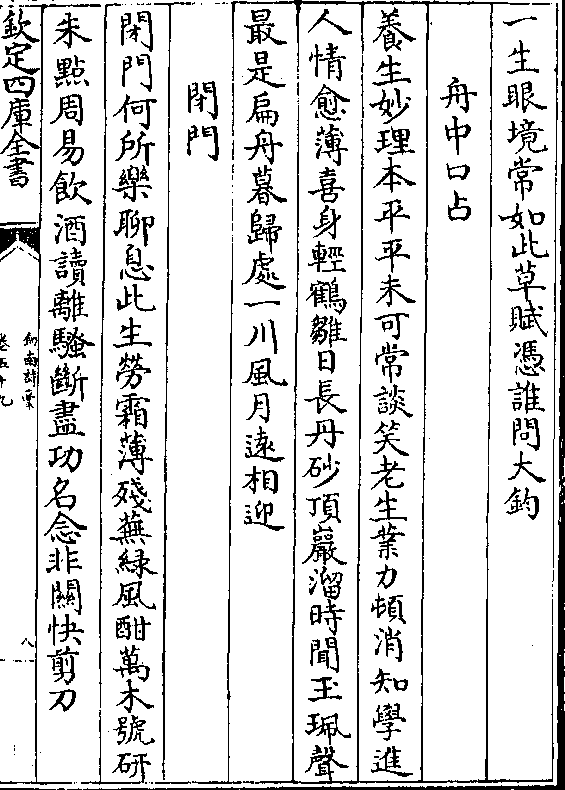 一生眼境常如此草賦憑誰問大鈞
舟中口占
養生妙理本平平未可常談笑老生業力頓消知學進
人情愈薄喜身輕鶴雛日長丹砂頂巖溜時聞玉珮聲
最是扁舟暮歸處一川風月遠相迎
閉門
閉門何所樂聊息此生勞霜薄殘蕪緑風酣萬木號研
朱㸃周易飲酒讀離騷斷盡功名念非關快剪刀
欽定四庫全書
劍南詩藁
卷五十九
八